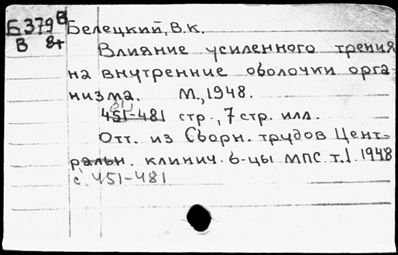 Б379В Белецкий, В.К.
В 8т
Влияние усиленного трения
на внутренние оболочки орга
низма. М., 1948.
451-481 стр., 7 стр. илл.
Отт. из Сборн. трудов Цент-
ральн. клинич. б-цы МПС. т.I. 1948
с. 451-481